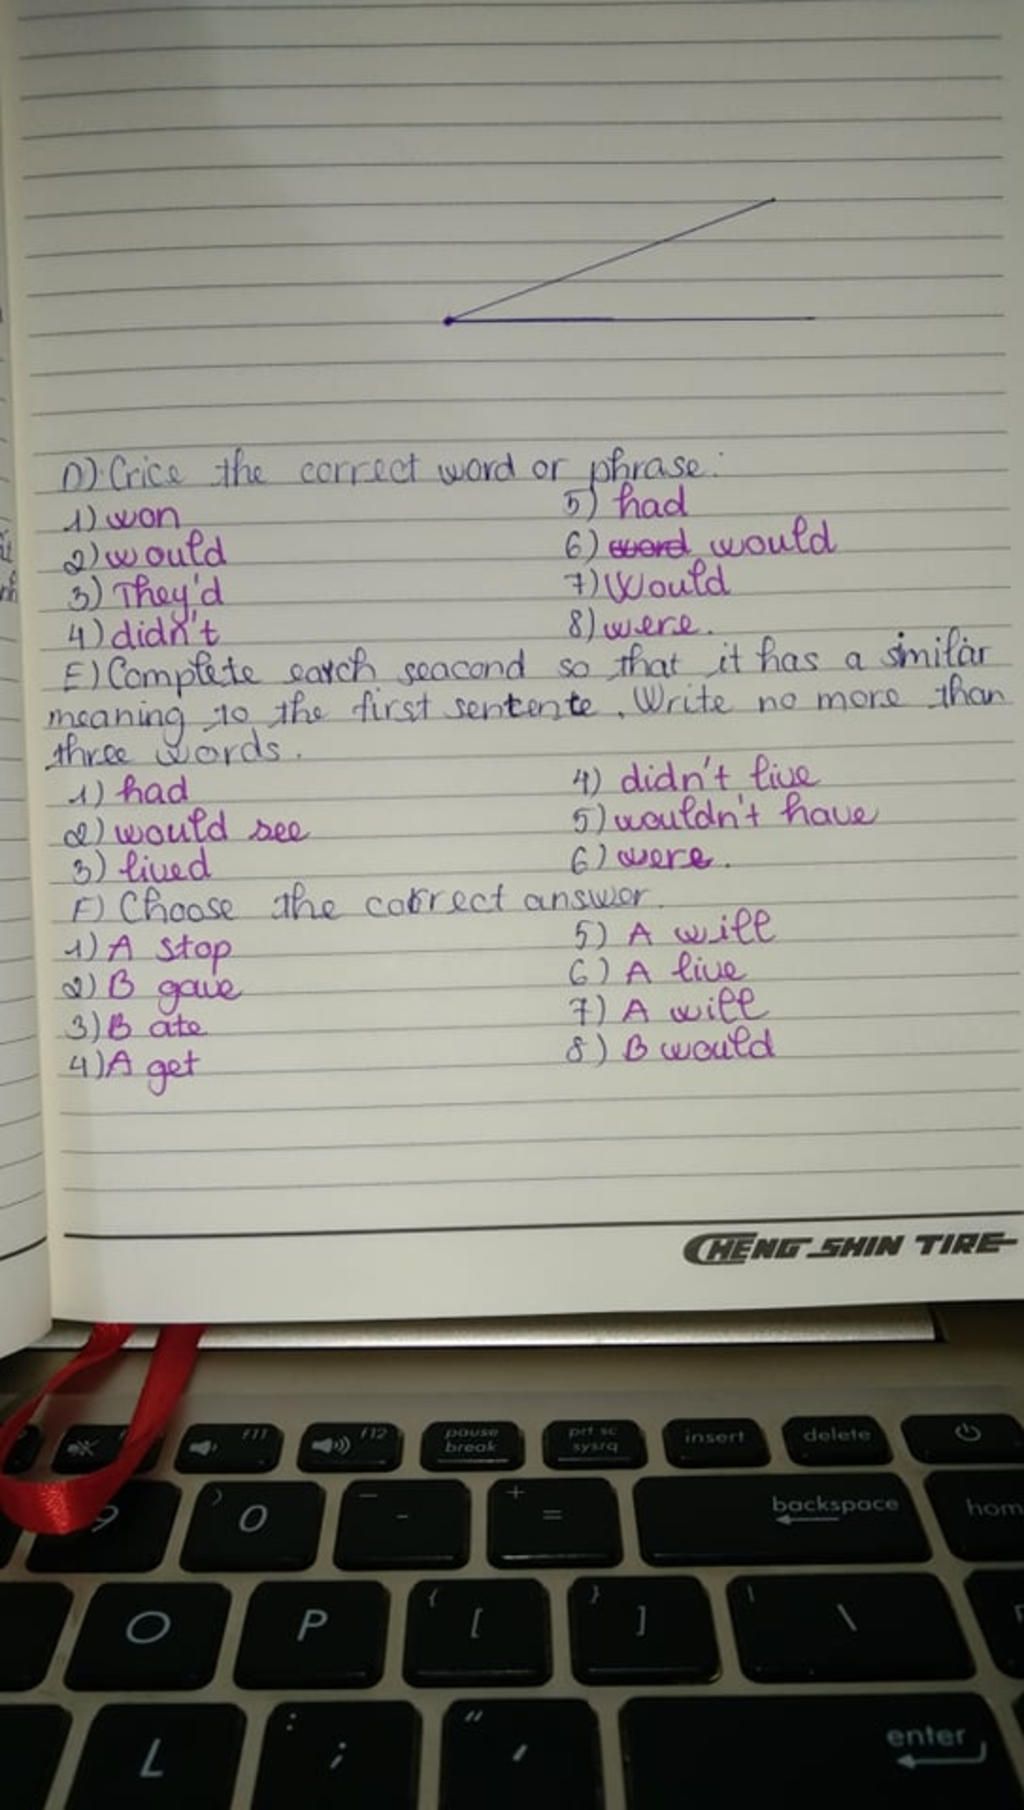 D) Crice the correct word or phrase:
1) won
2) would
3) They'd
4) didn't
5) had
6) word would
7) Would
8) were.
E) Complete earch seacond so that it has a similar
meaning to the first sentente. Write no more than
three words.
1) had
2) would see
3) lived
4) didn't live
5) wouldn't have
6) were.
F) Choose the correct answer.
1) A stop
2) B gave
3) B ate
4) A get
5) A will
6) A live
7) A will
8) B would
CHENG SHIN TIRE
f11
f12
pause
break
prt sc
sysrq
insert
delete
9
) 0
- -
+ =
backspace
hom
O
P
{ [
} ]
| \
L
: ;
" '
enter